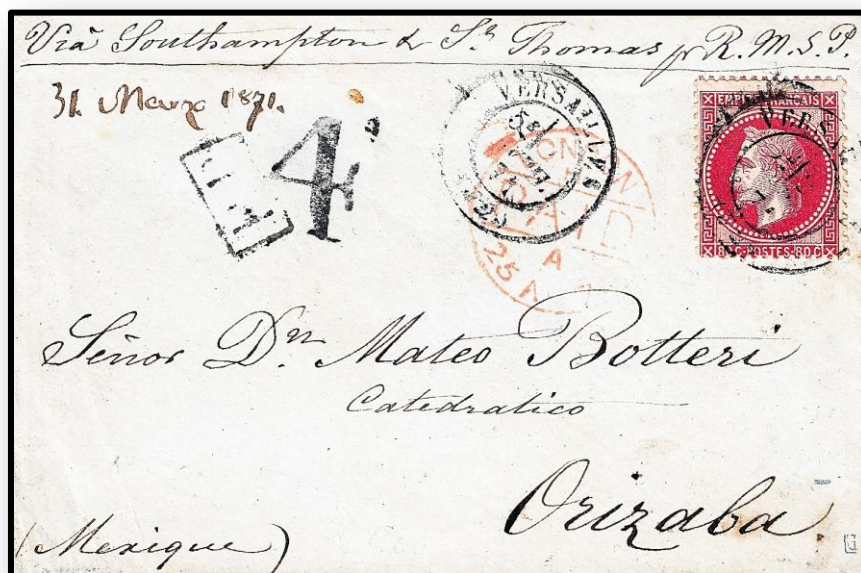 Via Southampton & St Thomas pr R.M.S.P.
31. Marzo 1871.
VERSAILLES
EMPIRE FRANÇAIS
VERSA
4
25 A
80 C POSTES 80 C
Señor Dn. Mateo Botteri
Catedratico
Orizaba
(Mexique)